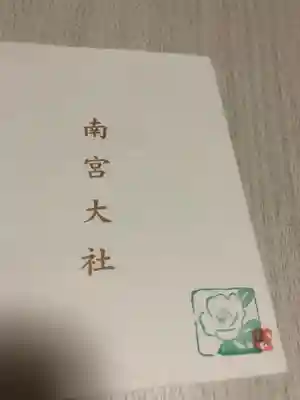 南宮大社